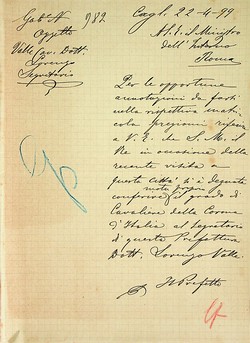 Gab.° N 982
Oggetto
Valle Cav. Dott.
Lorenzo
Segretario
Cagl. 22-4-99.
A. S. E. il Ministro
dell'Interno
Roma
Per le opportune
annotazioni da farsi
nella rispettiva matri
cola pregiomi riferire
a V. E. che S. M. il
Re in occasione della
recente visita a
questa città si è degnata
motu proprio
conferire il grado di
Cavaliere della Corona
d'Italia al segretario
di questa Prefettura
Dott. Lorenzo Valle.
Il Prefetto